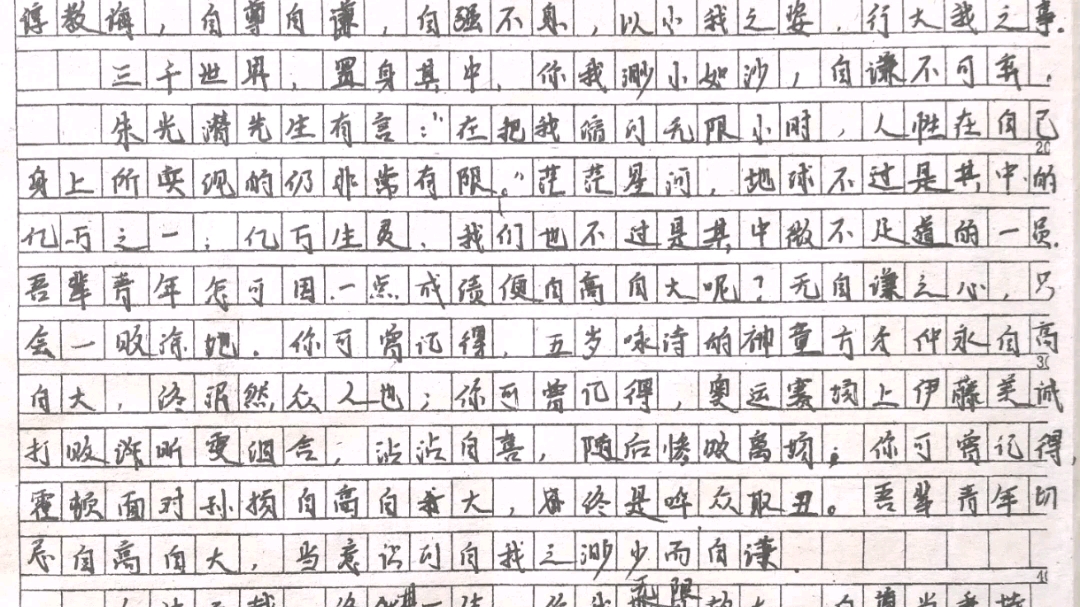 谆教诲，自尊自谦，自强不息，以小我之姿，行大我之事.
三千世界，置身其中，你我渺小如沙，自谦不可弃.
朱光潜先生有言：“在把我缩可无限小时，人性在自己
20
身上所实现的仍非常有限。”茫茫星河，地球不过是其中的
亿万之一；亿万生灵，我们也不过是其中微不足道的一员.
吾辈青年怎可因一点成绩便自高自大呢？无自谦之心，只
会一败涂地.你可曾记得，五岁咏诗的神童方才仲永自高
30
自大，终泯然众人也；你可曾记得，奥运赛场上伊藤美诚
打败许昕雯组合，沾沾自喜，随后惨败离场；你可曾记得，
霍顿面对孙杨自高自大，终是哗众取丑。吾辈青年切
忌自高自大，当意识到自我之渺少而自谦.
40
无限